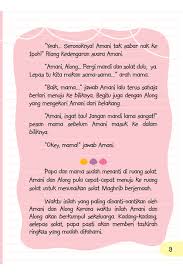 "Yeah... Seronoknya! Amani tak sabar nak ke
Ipoh!" Riang kedengaran suara Amani.
"Amani, Along... Pergi mandi dan solat dulu, ya.
Lepas tu kita makan sama-sama..." arah mama.
"Baik, mama..." jawab Amani lalu terus sahaja
berlari menuju ke biliknya. Begitu juga dengan Along
yang mengekori Amani dari belakang.
"Amani, ingat tau! Jangan mandi lama sangat!"
pesan mama sebelum Amani masuk ke dalam
biliknya.
"Okey, mama!" jawab Amani.
Papa dan mama sudah menanti di ruang solat.
Amani dan Along pula cepat-cepat menuju ke ruang
solat untuk menunaikan solat Maghrib berjemaah.
Waktu inilah yang paling dinanti-nantikan oleh
Amani dan Along kerana waktu inilah Amani dan
Along akan berkumpul sekeluarga. Kadang-kadang,
selepas solat, papa pasti akan memberi tazkirah
ringkas yang mudah difahami.
3